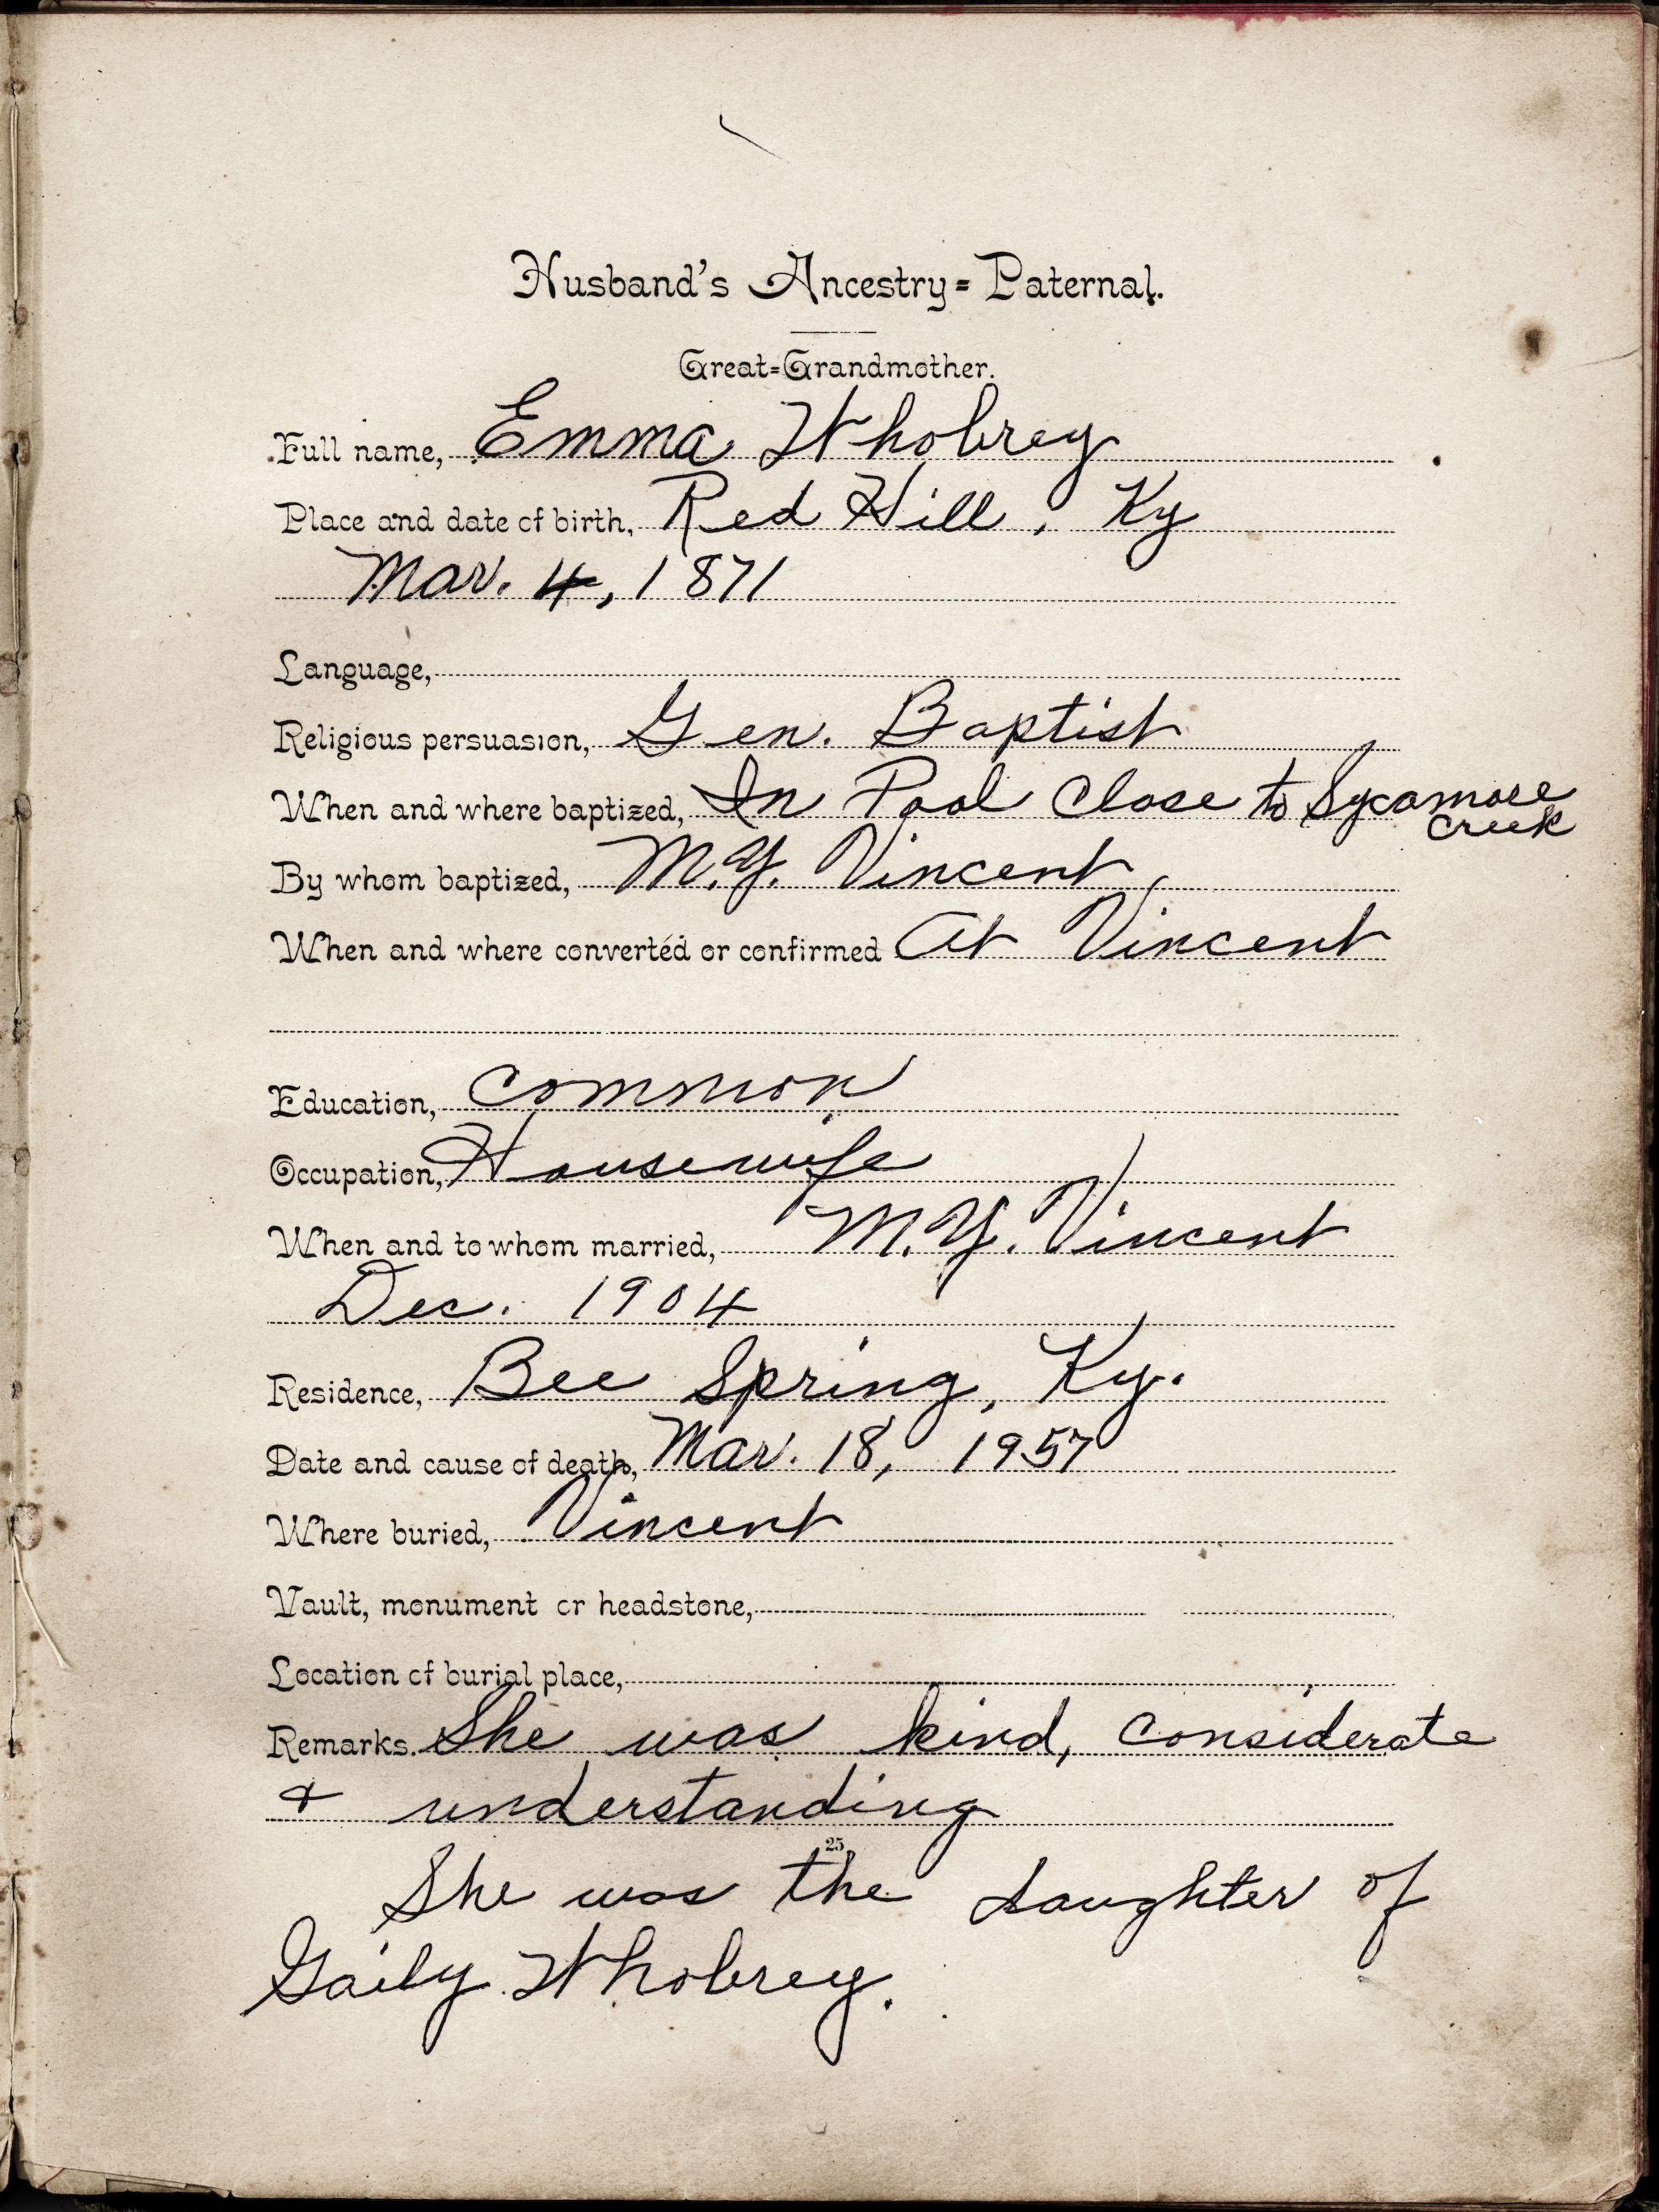 Husband's Ancestry=Paternal.
Great=Grandmother.
Full name, Emma Whobrey
Place and date of birth, Red Hill, Ky
Mar. 4, 1871
Language,
Religious persuasion, Gen. Baptist
When and where baptized, In Pool Close to Sycamore
Creek
By whom baptized, M.Y. Vincent
When and where converted or confirmed At Vincent
Education, Common
Occupation, Housewife
When and to whom married, M.Y. Vincent
Dec. 1904
Residence, Bee Spring, Ky.
Date and cause of death, Mar. 18, 1957
Where buried, Vincent
Vault, monument or headstone,
Location of burial place,
Remarks. She was kind, considerate
& understanding
25
She was the daughter of
Gaily Whobrey.